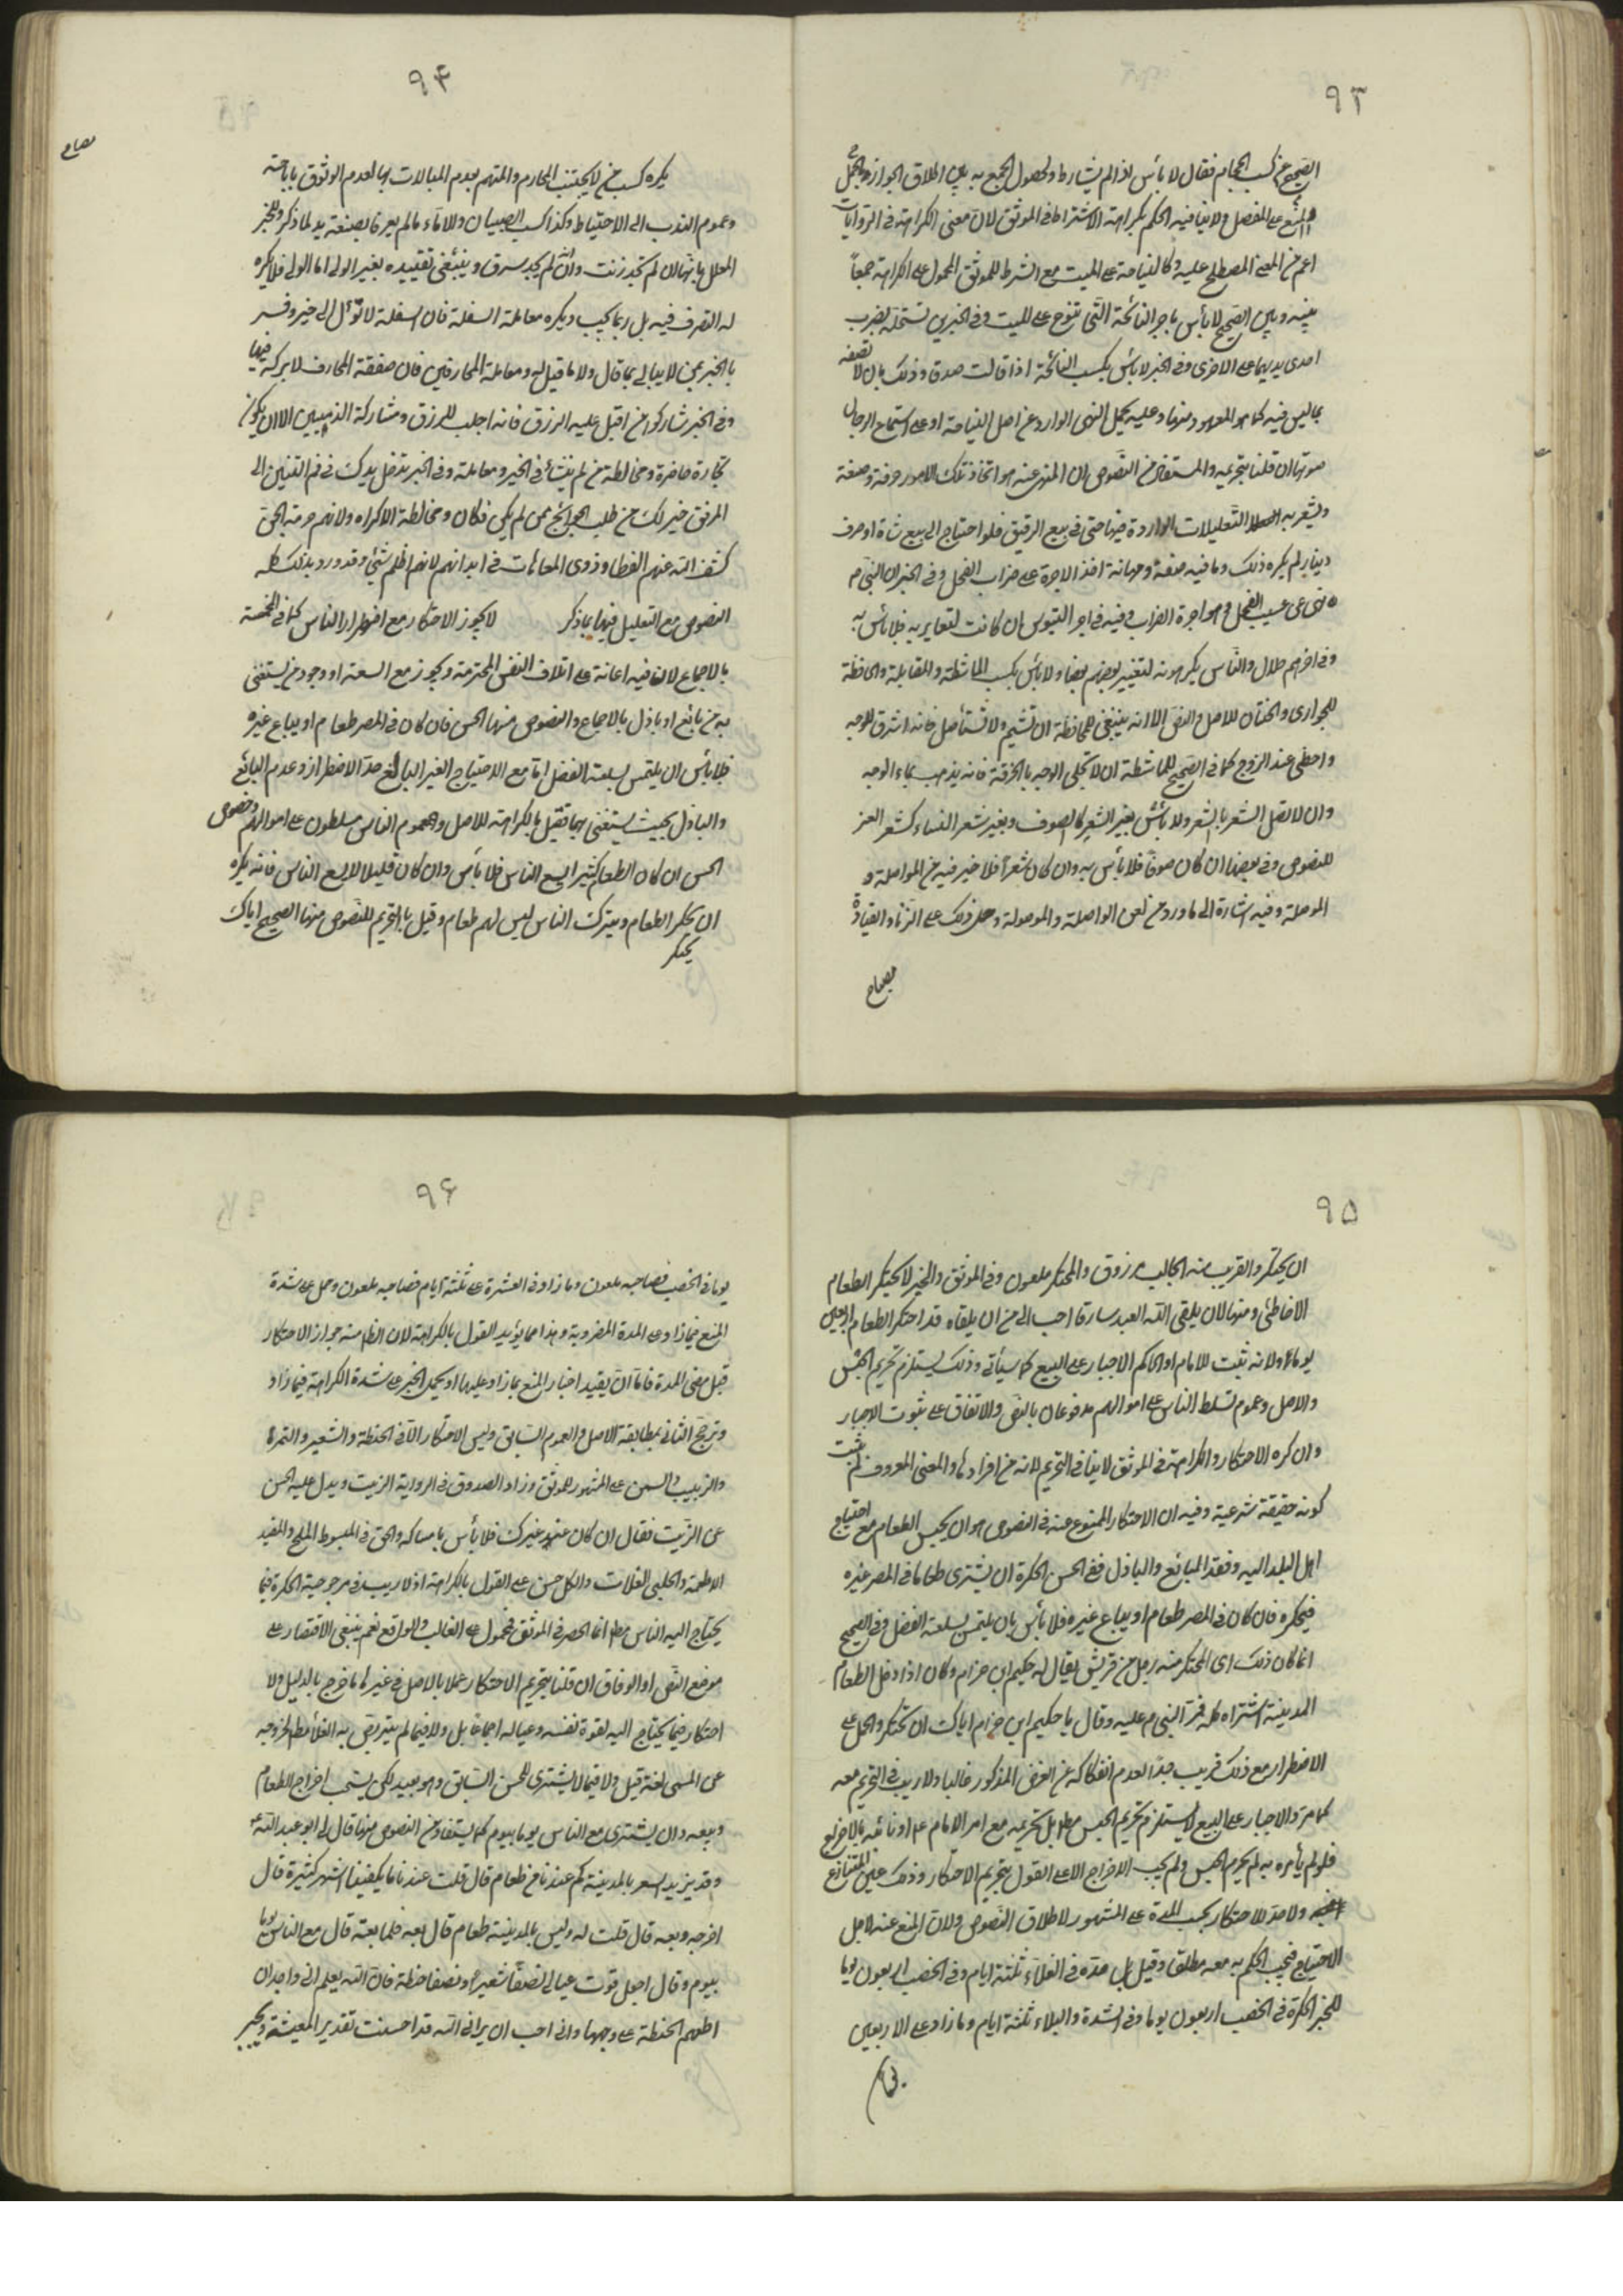 ٩٣
الصحيح عن كسب الحجام فقال لا بأس اذا لم يشارط ولحصول الجمع به بين اطلاق الجواز والحمل
المنع على المفصل ولا ينافيه الحكم بكراهة الاشتراط في الموثق لان معنى الكراهة في الروايات
اعم من المعنى المصطلح عليه وكالنياحة على الميت مع الشرط للموثق المحمول على الكراهة جمعاً
بينه وبين الصحيح لا بأس باجر النائحة التي تنوح على الميت وفي الخبرين تستحله بضرب
احدى يديها على الاخرى وفي الخبر لا بأس بكسب النائحة اذا قالت صدقا وذلك بان لا تصفه
بما ليس فيه كما هو المعهود منها وعليه يحمل النهي الوارد عن اصل النياحة او على استماع الرجال
صوتها ان قلنا بتحريمه والمستفاد من النصوص ان المنهي عنه هو اتخاذ تلك الامور حرفة وصنعة
ويشعر به التعليلات الواردة فيها حتى في بيع الرقيق فلو احتاج الى بيع شاة او صرف
دينار لم يكره ذلك وما فيه ضعة ومهانة اخذ الاجرة على ضراب الفحل وفي الخبر ان النبي ص
نهى عن عسيب الفحل وهو اجرة الضراب وفيه في اجر التيوس ان كانت لتعاير به فلا بأس به
وفي آخر هم حلال والناس يكرهونه لتعيير بعضهم بعضا ولا بأس بكسب الماشطة والقابلة والحافظة
للجواري والختان للاصل والنص الا انه ينبغي للحافظة ان تشيم ولا تستأصل فانه اشرق للوجه
واحظى عند الزوج كما في الصحيح للماشطة ان لا تجلي الوجه بالخرقة فانه يذهب بماء الوجه
وان لا تصل الشعر بالشعر ولا بأس بغير الشعر كالصوف وبغير شعر النساء كشعر المعز
للنصوص وفي بعضها ان كان صوفا فلا بأس به وان كان شعراً فلا خير فيه من الواصلة و
الموصلة وفيه اشارة الى ما ورد من لعن الواصلة والموصولة وحمل ذلك على الزنا والقيادة
٩٤
يكره كسب من لا يجتنب المحارم والمتهم بعدم المبالات بها لعدم الوثوق باباحته
وعموم الندب الى الاحتياط وكذا كسب الصبيان والاماء ما لم يعرفا بصنعة يد لما ذكر وللخبر
المعلل بانها ان لم تجد زنت وانه لم يجد سرق وينبغي تقييده بغير الولي اما الولي فلا يكره
له التصرف فيه بل ربما يجب ويكره معاملة السفلة فان السفلة لا تؤل الى خير وفسر
بالخبر بمن لا يبالي بما قال ولا ما قيل له ومعاملة المحارفين فان صفقة المحارف لا بركة فيها
وفي الخبر شاركوا من اقبل عليه الرزق فانه اجلب للرزق ومشاركة الذميين الا ان يكون
تجارة حاضرة ومخالطة من لم ينشأ في الخير ومعاملته وفي الخبر تدخل يدك في فم التنين الى
المرفق خير لك من طلب الحوائج ممن لم يكن فكان ومخالطة الاكراد لانهم حي من الجن
كشف الله عنهم الغطا وذوي العاهات في ابدانهم لانهم اظلم شيء وقد ورد بذلك كله
النصوص مع التعليل فيها بما ذكر لا يجوز الاحتكار مع اضطرار الناس كما في المخمصة
بالاجماع لان فيه اعانة على اتلاف النفس المحترمة ويجوز مع السعة او وجود من يستغنى
به من بائع او باذل بالاجماع والنصوص منها الحسن فان كان في المصر طعام او يباع غيره
فلا بأس ان يلتمس بسلعته الفضل اما مع الاحتياج الغير البالغ حد الاضطرار وعدم البائع
والباذل بحيث يستغنى بهما فقيل بالكراهة للاصل وعموم الناس مسلطون على اموالهم وخصوص
الحسن ان كان الطعام كثيرا يسع الناس فلا بأس وان كان قليلا لا يسع الناس فانه يكره
ان يحتكر الطعام ويترك الناس ليس لهم طعام وقيل بالتحريم للنصوص منها الصحيح اياك
٩٥
ان يحتكر والقريب منه الجالب مرزوق والمحتكر ملعون وفي الموثق والخبر لا يحتكر الطعام
الا خاطئ ومنها لان يلقى الله العبد سارقا احب الي من ان يلقاه قد احتكر الطعام اربعين
يوما ولانه ثبت للامام او الحاكم الاجبار على البيع كما سيأتي وذلك يستلزم تحريم الحبس
والاصل وعموم تسلط الناس على اموالهم مدفوعان بالنص والاتفاق على ثبوت الاجبار
وان كره الاحتكار والكراهة في الموثق لا ينافي التحريم لانه من افرادها والمعنى المعروف لم يثبت
كونه حقيقة شرعية وفيه ان الاحتكار الممنوع عنه في النصوص هو ان يحبس الطعام مع احتياج
اهل البلد اليه وفقد البائع والباذل ففي الحسن الحكرة ان يشتري طعاما في المصر غيره
فيحتكره فان كان في المصر طعام او يباع غيره فلا بأس بان يلتمس بسلعته الفضل وفي الصحيح
انما كان ذلك اي المحتكر منه رجل من قريش يقال له حكيم ابن حزام وكان اذا دخل الطعام
المدينة اشتراه كله فمر النبي ص عليه وقال يا حكيم ابن حزام اياك ان تحتكر والحمل على
الاضطرار مع ذلك قريب جدا لعدم انفكاكه عن الفرض المذكور غالبا ولا ريب في التحريم معه
كما مر والاجبار على البيع لا يستلزم تحريم الحبس مطلقا بل تحريمه مع امر الامام ع او نائبه بالاخراج
فلو لم يأمره به لم يحرم الحبس ولم يجب الاخراج الا على القول بتحريم الاحتكار وذلك عين المتنازع
ولا حد للاحتكار بحسب المدة على المشهور لاطلاق النصوص ولان المنع عنه لاجل
الاحتياج فيجب الحكم به معه مطلقا وقيل بل حده في الغلاء ثلثة ايام وفي الخصب اربعون يوما
للخبر الحكرة في الخصب اربعون يوما وفي الشدة والبلاء ثلثة ايام وما زاد على الاربعين
٩۶
يوما في الخصب فصاحبه ملعون وما زاد في العشرة على ثلثة ايام فصاحبه ملعون وحمل على شدة
المنع فيما زاد على المدة المضروبة وهذا مما يؤيد القول بالكراهة لان الظاهر منه جواز الاحتكار
قبل مضي المدة فاما ان يقيد اخبار المنع بما زاد عليها او يحمل الخبر على شدة الكراهة فيما زاد
وترجح الثاني بمطابقة الاصل والعموم السابق وليس الاحتكار الا في الحنطة والشعير والتمرة
والزبيب والسمن على المشهور للموثق وزاد الصدوق في الرواية الزيت ويدل عليه الحسن
عن الزيت فقال ان كان عند غيرك فلا بأس بامساكه والحق في المبسوط الملح والمفيد
الاطعمة والحلبي الغلات والكل حسن على القول بالكراهة اذ لا ريب في مرجوحية الحكرة فيما
يحتاج اليه الناس مطلقا اما الحصر في الموثق فمحمول على الغالب والواقع نعم ينبغي الاقتصار على
موضع النص او الوفاق ان قلنا بتحريم الاحتكار عملا بالاصل في غير ما خرج بالدليل ولا
احتكار فيما يحتاج اليه لقوة نفسه وعياله اجماعا بل ولا فيما لم يتربص به الغلاء مطلقا لخروجه
عن المسمى لغة قيل ولا فيما لا يشترى للحسن السابق وهو بعيد لكن يستحب اخراج الطعام
وبيعه وان يشتري مع الناس يوما بيوم كما يستفاد من النصوص منها قال لي ابو عبد الله ع
وقد يزيد السعر بالمدينة كم عندنا من طعام قال قلت عندنا ما يكفينا اشهر كثيرة قال
اخرجه وبعه قال قلت له وليس بالمدينة طعام قال بعه فلما بعته قال مع الناس يوما
بيوم وقال اجعل قوت عيالي نصفا شعيراً ونصفا حنطة فان الله يعلم اني واجد ان
اطعمهم الحنطة على وجهها واني احب ان يراني الله قد احسنت تقدير المعيشة ويجبر